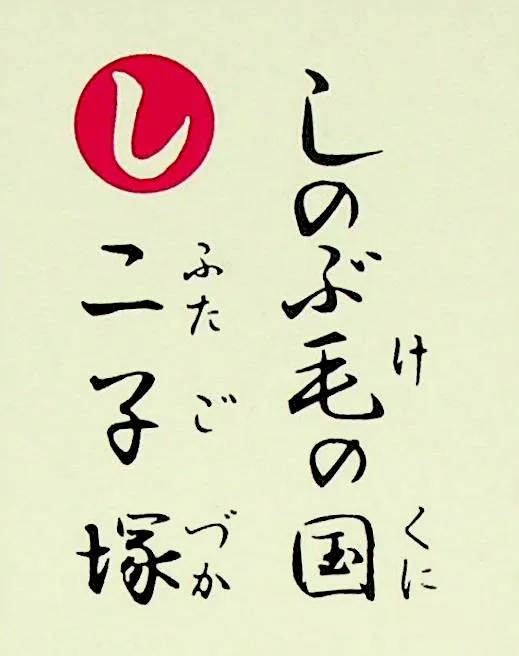 しのぶ毛の国
けくに
し
二子塚
ふたごづか